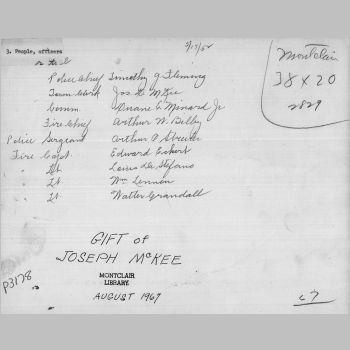 3. People, officers
5/17/52
L to R
Police Chief Timothy J. Fleming
Town Clerk Jos. D. McKee
Comm. Duane E. Minard Jr
Fire Chief Arthur W. Bilby
Police Sergeant Arthur P. Streeter
Fire Capt. Edward Eckert
" Lt. Louis De Stefano
" Lt. Wm Lennon
" Lt. Walter Crandall
Montclair
38 x 20
2829
GIFT of
JOSEPH McKEE
MONTCLAIR
LIBRARY
AUGUST 1967
P3178
67